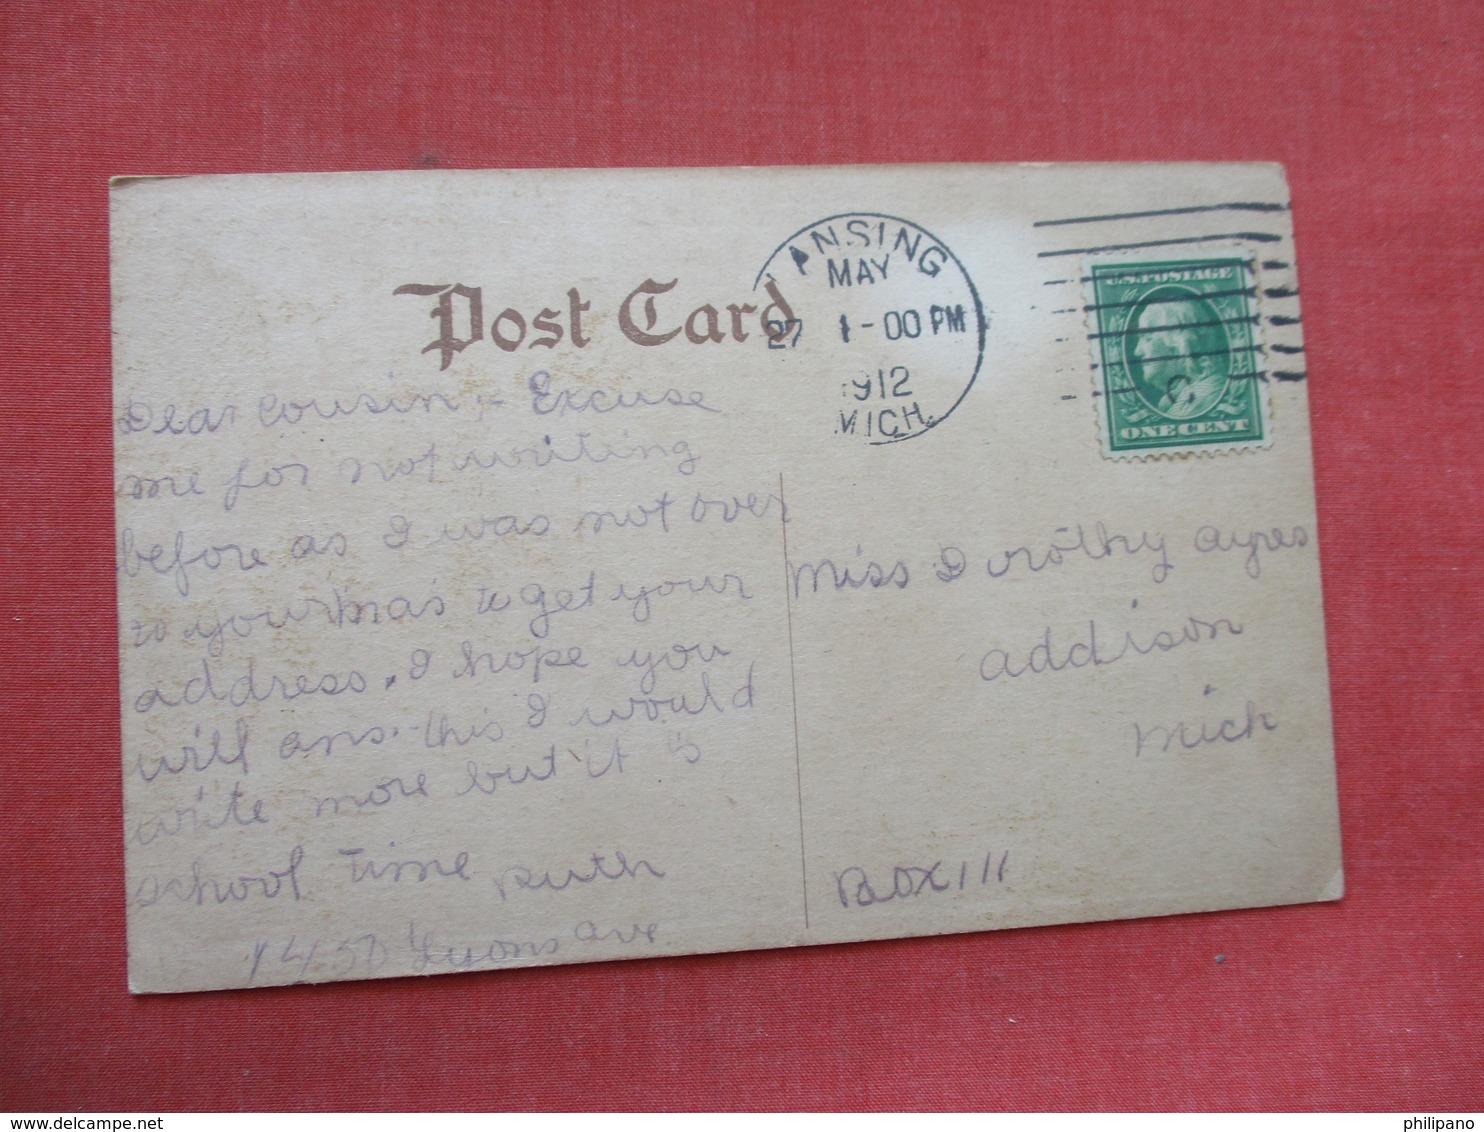 Post Card
LANSING
MAY
27 1-00 PM
1912
MICH.
U.S. POSTAGE
ONE CENT
Dear Cousin:- Excuse
me for not writing
before as I was not over
to your ma's to get your
address. I hope you
will ans. this I would
write more but it is
school time Ruth
1430 Lyons ave
Miss Dorothy Ayres
Addison
Mich
Box 111
delcampe.net
philipano